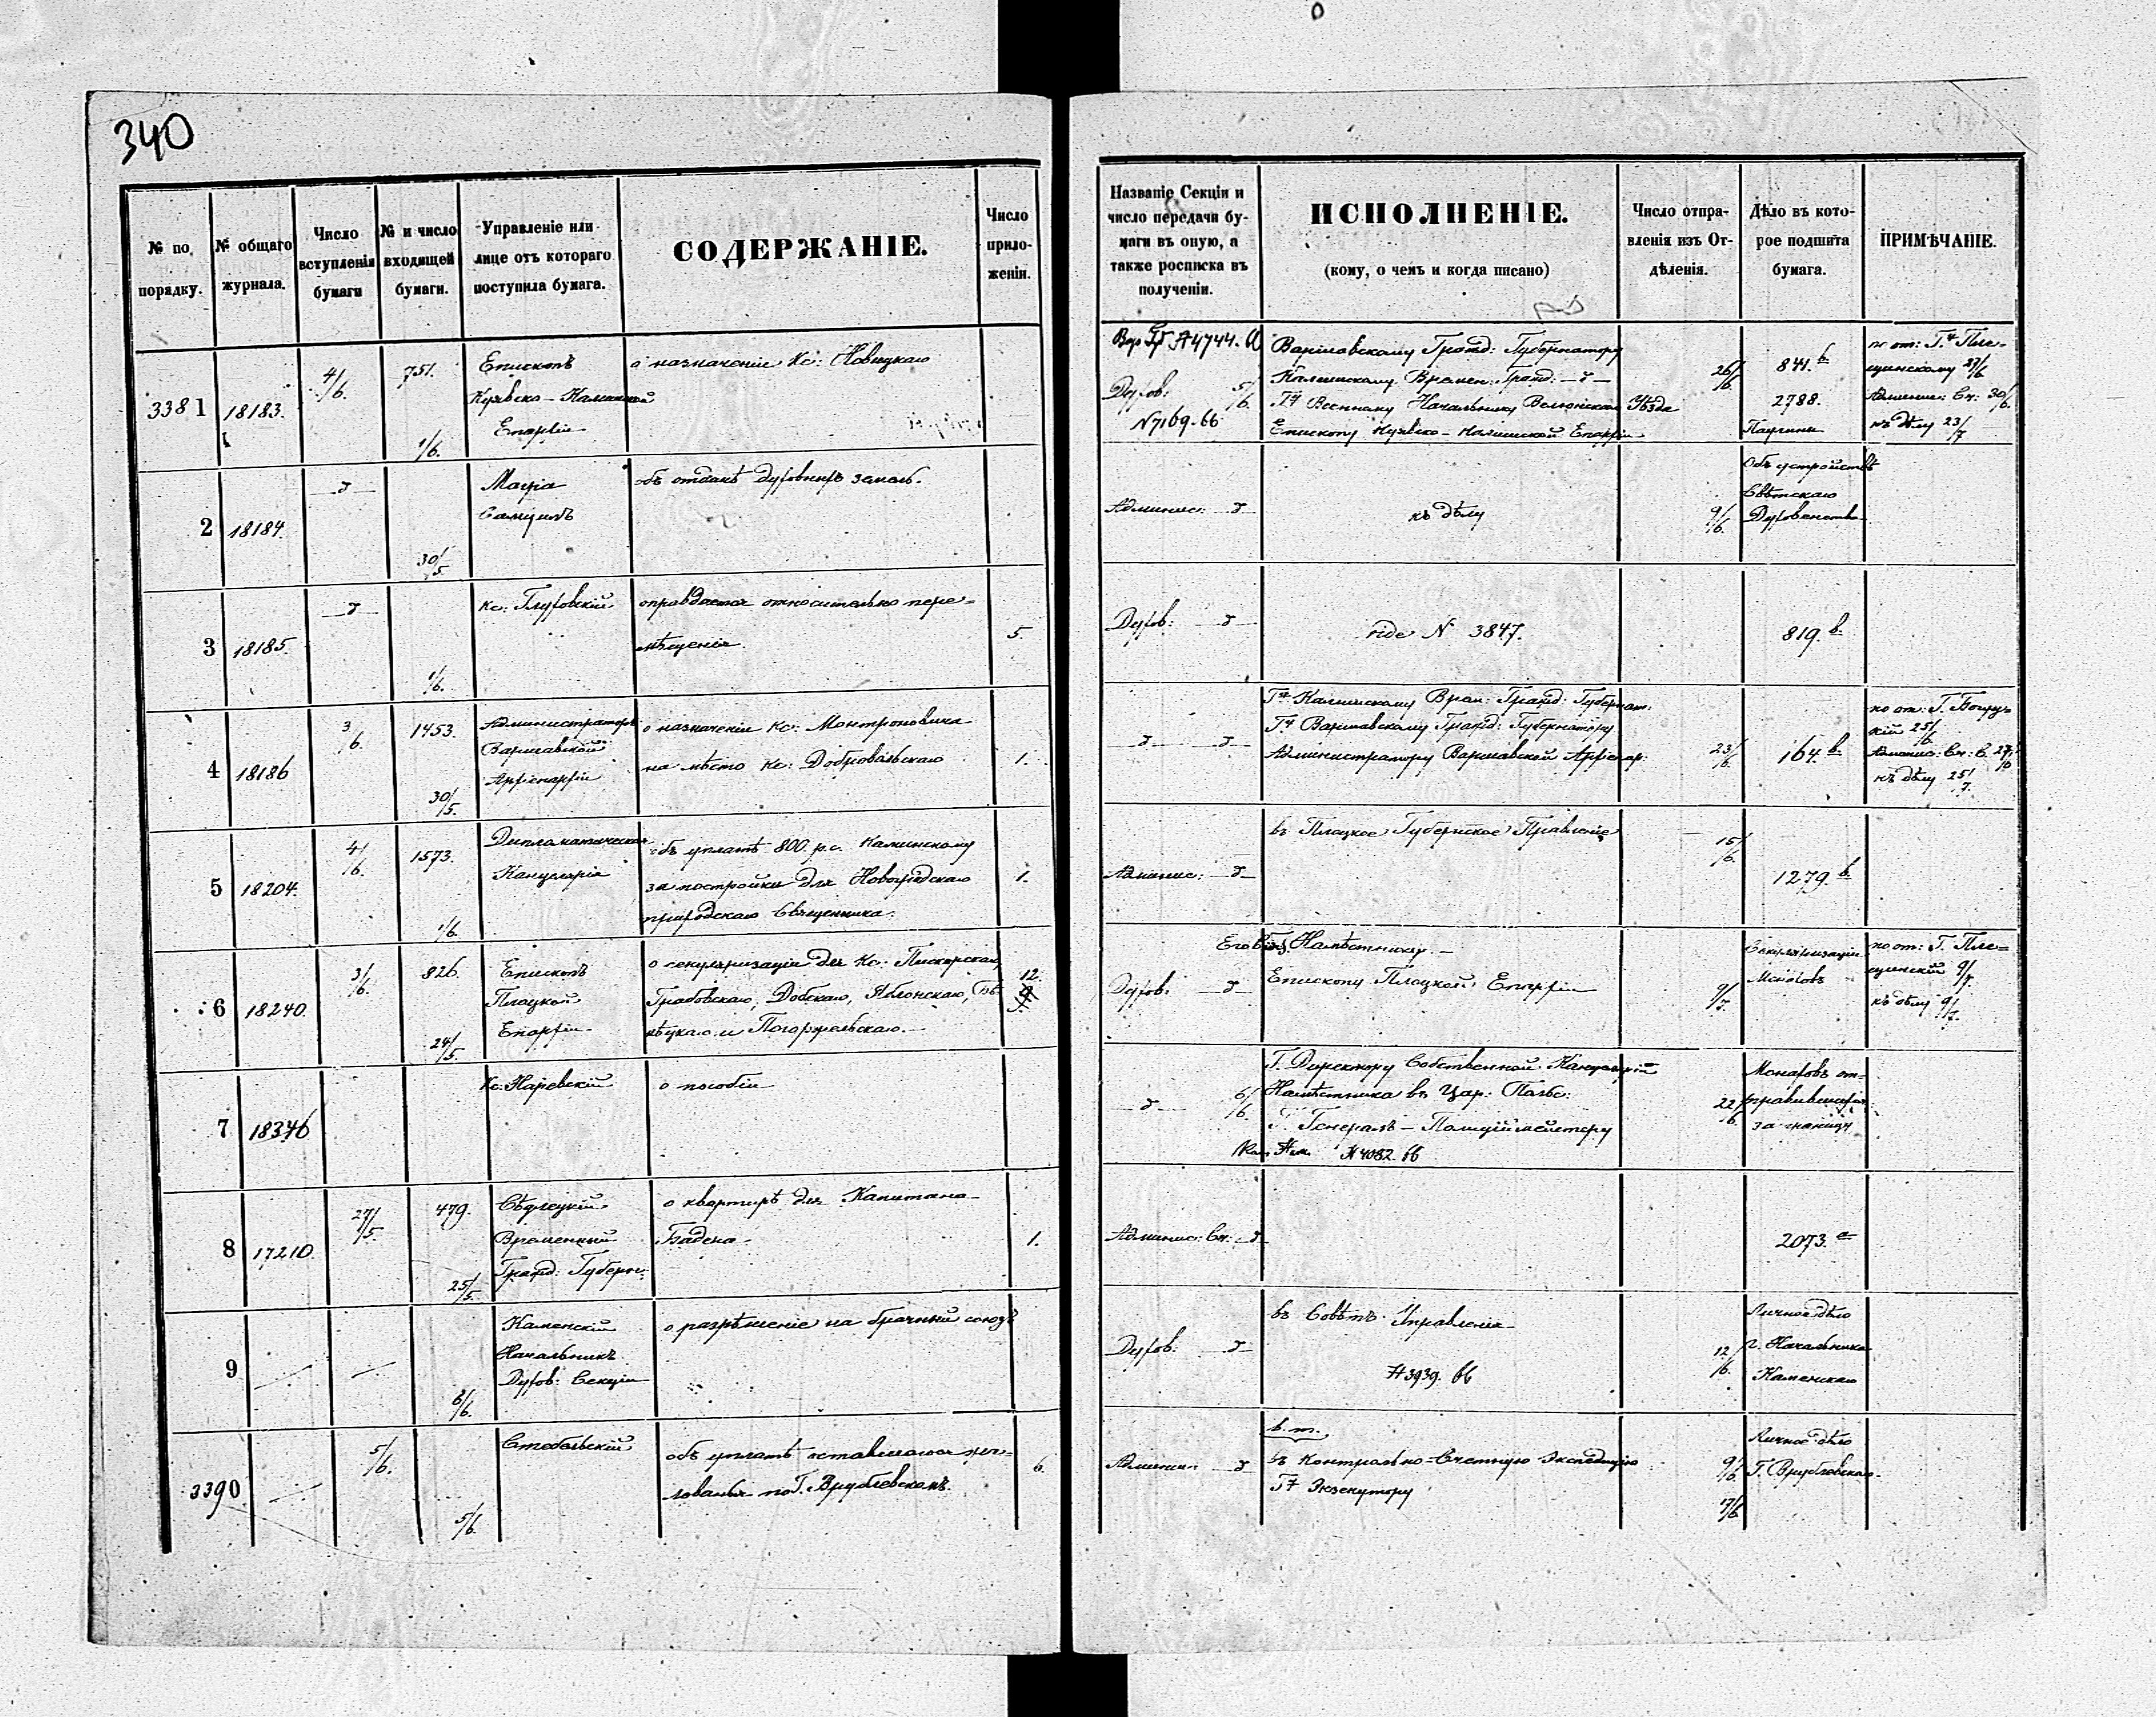 340
№ по порядку.
№ общаго журнала.
Число вступленія бумаги
№ и число входящей бумаги.
Управленіе или лице отъ котораго поступила бумага.
СОДЕРЖАНІЕ.
Число приложеній.
Названіе Секціи и число передачи бумаги въ оную, а также росписка въ полученіи.
ИСПОЛНЕНІЕ.
(кому, о чемъ и когда писано)
Число отправленія изъ Отдѣленія.
Дѣло въ которое подшита бумага.
ПРИМѢЧАНІЕ.
3381
18183.
4/6.
751.
1/6.
Епископъ
Куявско-Калишской
Епархіи
о назначеніи Кс: Новицкаго
4744
Духов: 5/6.
N 7169.66
Варшавскому Гражд: Губернатору
Калишскому Времен: Гражд: —д—
Гну Военному Начальнику Велюнскаго Уѣзда
Епископу Куявско-Калишской Епархіи
26/6
841.b
2788.
Паулины
къ дѣлу 23/7
2
18184.
—д—
30/5.
Марія
объ отдачѣ духовныхъ земель.
Админис: —д—
къ дѣлу
9/6.
Объ устройствѣ
Свѣтскаго
Духовенства
3
18185.
—д—
1/6.
Кс: Глуховскій
оправдается относительно пере-
мѣщенія
5.
Духов: —д—
vide N 3847.
819.b
4
18186
3/6.
1453.
30/5.
Администраторъ
Варшавской
Архіепархіи
о назначеніи Кс: Монтроновича
на мѣсто Кс: Добровольскаго
1.
—д— —д—
Гну Калишскому Врем: Гражд: Губернат:
Гну Варшавскому Гражд: Губернатору
Администратору Варшавской Архіепар:
23/6.
164.b
къ дѣлу 25/7.
5
18204.
4/6.
1573.
1/6.
Дипломатическая
Канцелярія
объ уплатѣ 800. р.с. Калинскому
за постройки для
приходскаго Священника.
1.
Админис: —д—
въ Плоцкое Губернское Правленіе
15/6.
1279.b
6
18240.
3/6.
826.
24/5.
Епископъ
Плоцкой
Епархіи
о секуляризаціи для Кс: Пискорскаго,
Грабовскаго, Добскаго, Яблонскаго,
и Погоржельскаго.
12.
Духов: —д—
Намѣстнику.
Епископу Плоцкой Епархіи
9/7.
Секуляризаціи
Монаховъ
къ дѣлу 9/7.
7
18346
Кс: Наревскій
о пособіи
—д— 6/6
Г. Директору Собственной Канцеляріи
Намѣстника въ Цар: Польс:
Г. Генералъ-Полиціймейстеру
N 4082. 66
22/6.
Монаховъ от-
правившихся
за границу
8
17210.
27/5.
479.
25/5.
Сѣдлецкій
Временный
Гражд: Губерн:
о квартирѣ для Капитана
Бадена
1.
Админис: Сч: —д—
2073.a
9
6/6.
Каменскій
Начальникъ
Духов: Секціи
о разрѣшеніе на брачный союзъ
Духов: —д—
въ Совѣтъ Управленія
N 3939. 66
12/6.
Личное дѣло
г. Начальника
Каменскаго
3390
5/6.
5/6.
Стобольскій
объ уплатѣ оставшагося жа-
лованья по Г. Врублевскомъ.
6.
Админис: —д—
в. т.
въ Контрольно-Счетную Экспедицію
Гну Экзекутору
9/6
17/6
Личное дѣло
Г. Врублевскаго